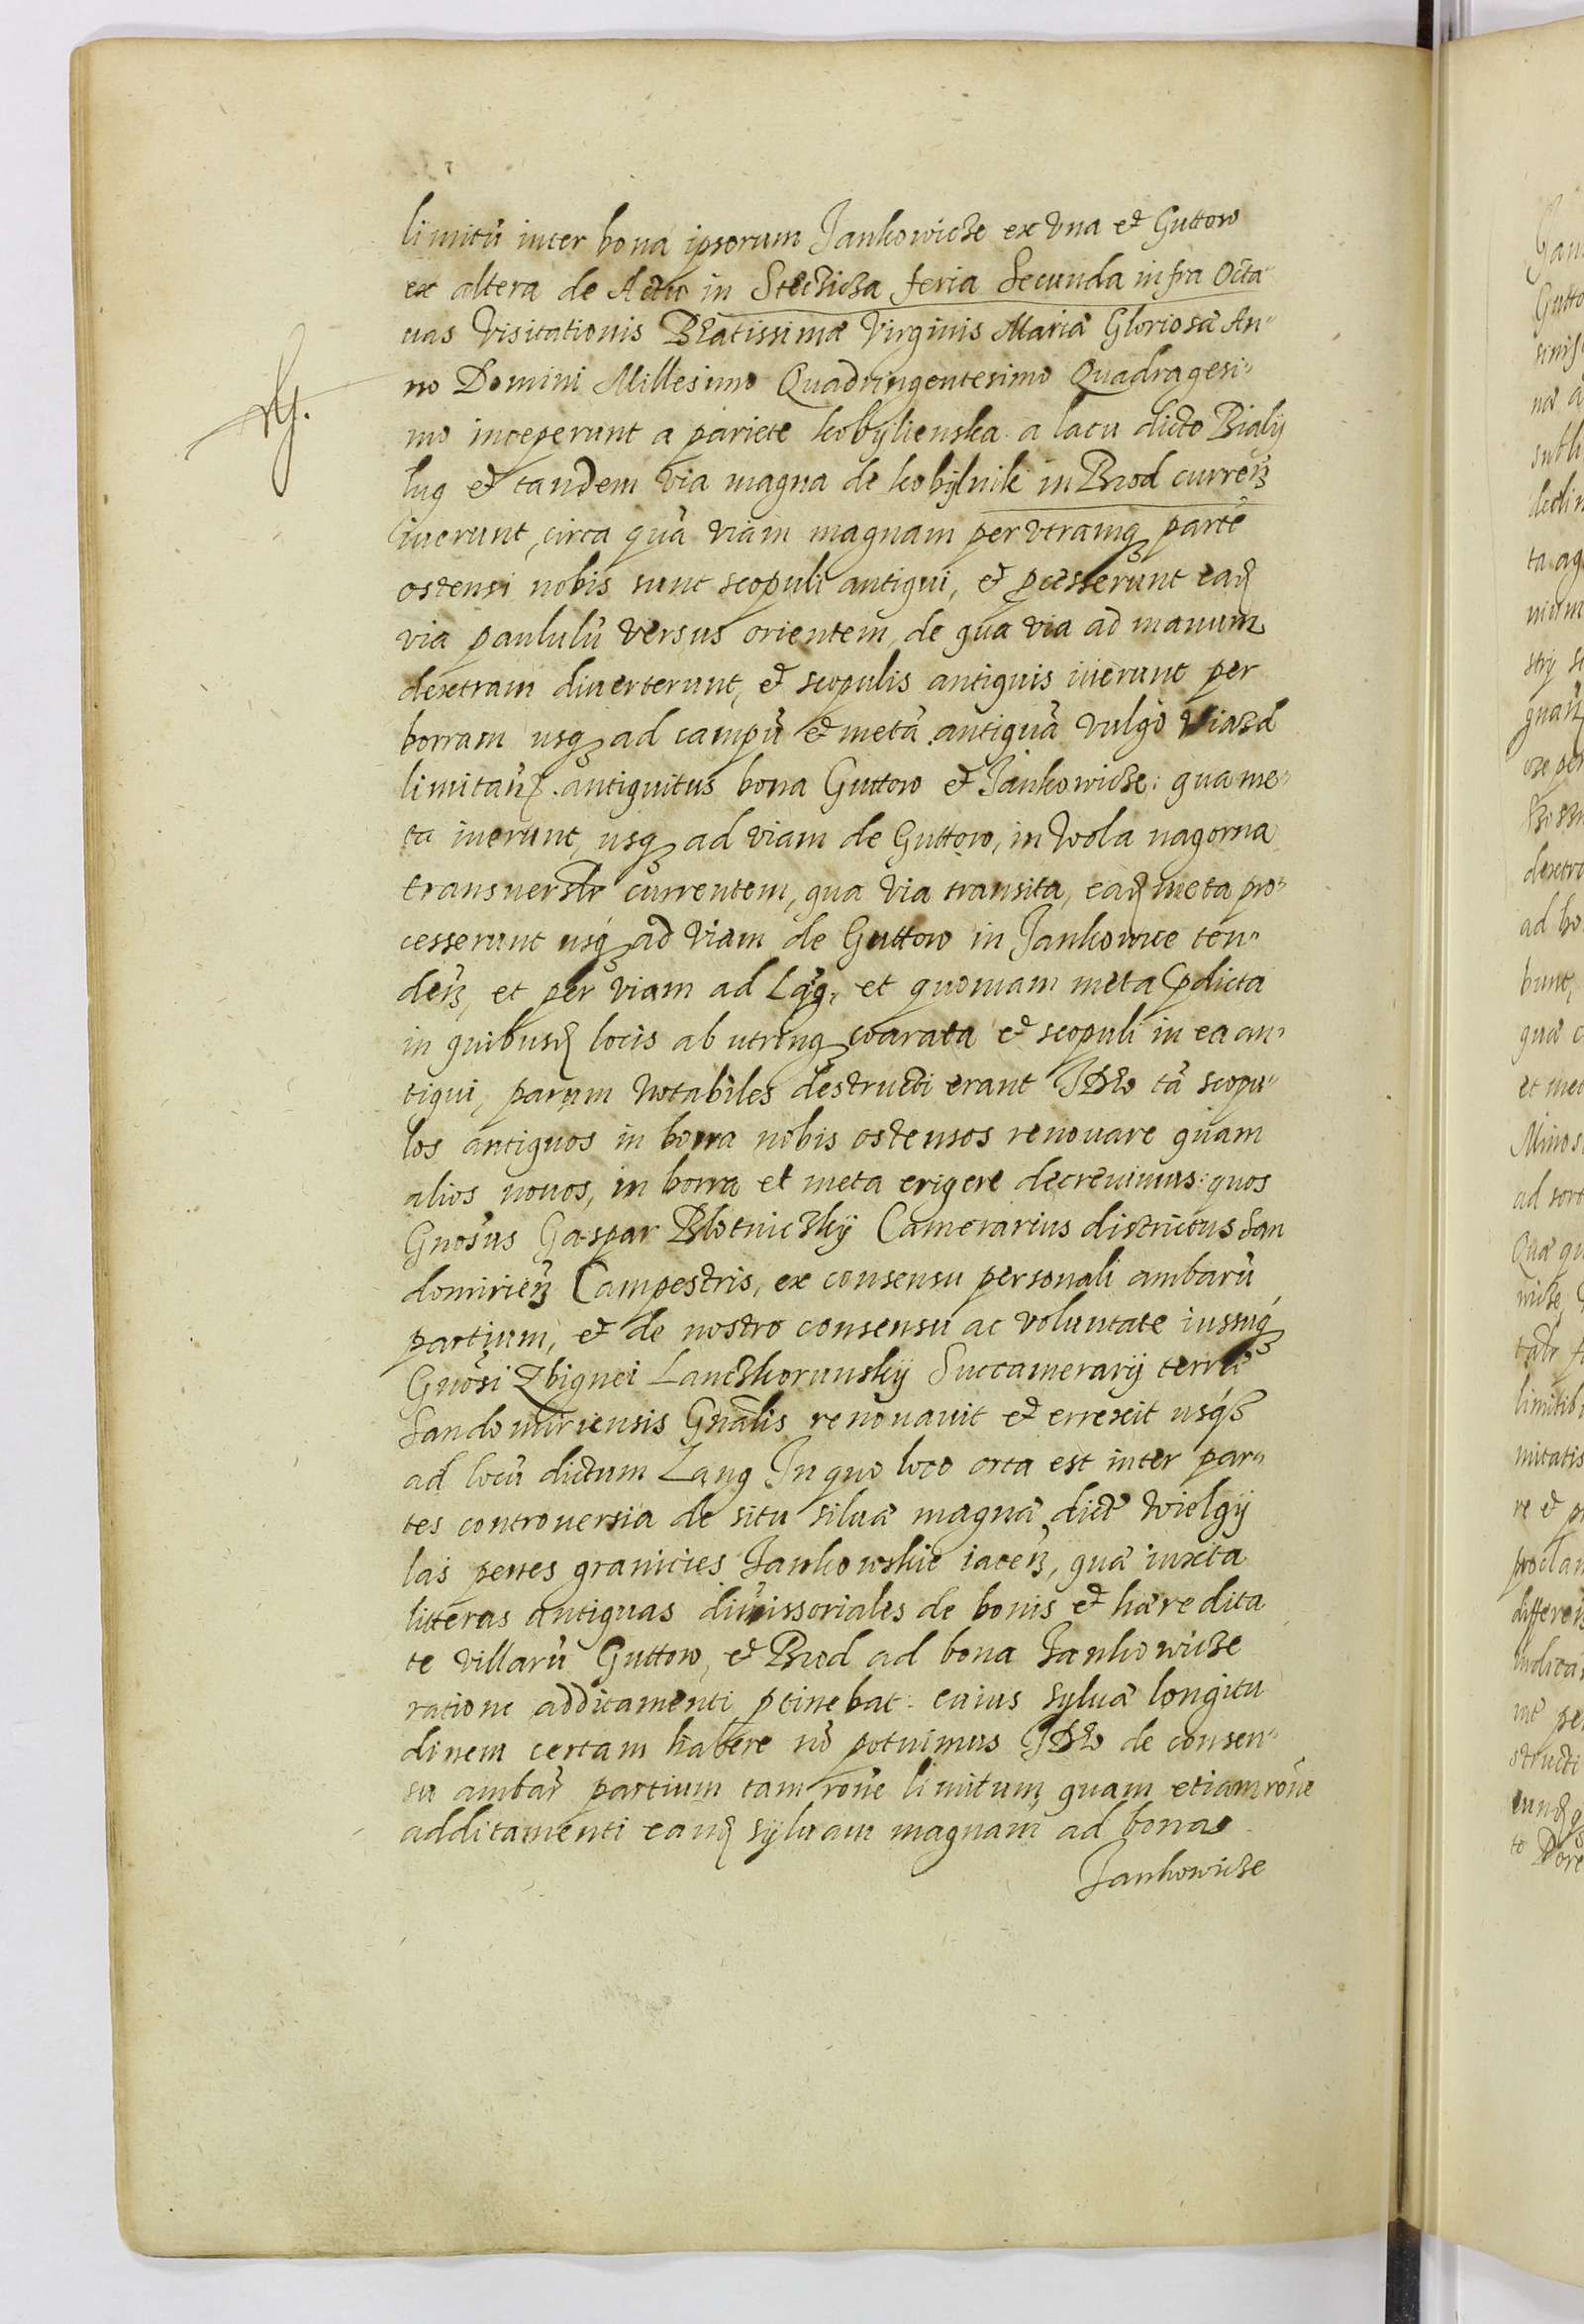 limitū inter bona ipsorum Jankowicze ex vna et Guttow
ex altera de Actu in Steczicza feria Secunda infra Octa
uas Visitationis Beatissimæ Virginis Mariæ Gloriosæ An„
no Domini Millesimo Quadringentesimo Quadragesi„
mo inceperunt a pariete kobylienska a lacu dicto Bialy
lug et tandem via magna de kobylnik in Brod curreñ
iuerunt, circa quā viam magnam per vtramq; partē
ostensi nobis sunt scopuli antiqui, et ꝓcesserunt eađ
via paululū versus orientem, de qua via ad manum
dextram diuerterunt, et scopulis antiquis iuerunt per
borram usq; ad campū et metā antiquā vulgo Viazd
limitañ antiquitus bona Guttow et Jankowicze: qua me„
ta iuerunt, usq; ad viam de Guttow, in Wola nagorna
transuerse currentem, qua via transita, eađ meta pro„
cesserunt usq; ad Viam de Guttow in Jankowice ten„
deñ, et per viam adLąg, et quoniam meta p̄dicta
in quibusđ locis ab utrinq; coarata et scopuli in ea an„
tiqui, parum notabiles destructi erant Ideo tā scopu„
los antiquos in borra nobis ostensos renouare quam
alios nouos, in borra et meta erigere decreuimus: quos
Gnōsus Gaspar Blotniczky Camerarius districtus San
domirieñ Campestris, ex consensu personali ambarū
partium, et de nostro consensu ac voluntate iussuq;
Gnōsi Zbignei Lanczkorunsky Succamerarij terræ
Sandomiriensis Gnālis renouauit et errexit usq;
ad locū dictum Lang In quo loco orta est inter par„
tes controuersia de situ siluæ magnæ dictæ Wielgy
las penes granicies Jankowskie iaceñ, quæ iuxta
litteras antiquas diuissoriales de bonis et hæredita
te villarū Guttow, et Brod ad bona Jankowicze
ratione additamenti ꝑtinebat: cuius syluæ longitu
dinem certam habere nō potuimus Ideo de consen„
su ambar̄ partium tam rōne limitum, quam etiam rōne
additamenti eanđ syluam magnam ad bona
Jankowicze